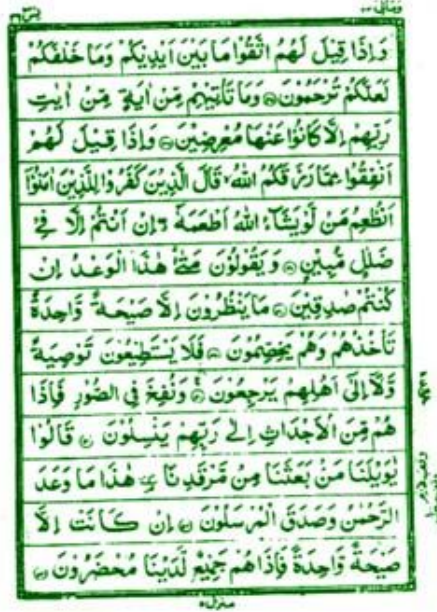 ومالی ۲۳ یٰسٓ ۳۶
وَاِذَا قِيْلَ لَهُمُ اتَّقُوْا مَا بَيْنَ اَيْدِيْكُمْ وَمَا خَلْفَكُمْ
لَعَلَّكُمْ تُرْحَمُوْنَ ﴿۴۵﴾ وَمَا تَاْتِيْهِمْ مِّنْ اٰيَةٍ مِّنْ اٰيٰتِ
رَبِّهِمْ اِلَّا كَانُوْا عَنْهَا مُعْرِضِيْنَ ﴿۴۶﴾ وَاِذَا قِيْلَ لَهُمْ
اَنْفِقُوْا مِمَّا رَزَقَكُمُ اللّٰهُ ۙ قَالَ الَّذِيْنَ كَفَرُوْا لِلَّذِيْنَ اٰمَنُوْۤا
اَنُطْعِمُ مَنْ لَّوْ يَشَآءُ اللّٰهُ اَطْعَمَهٗۤ ۖ اِنْ اَنْتُمْ اِلَّا فِيْ
ضَلٰلٍ مُّبِيْنٍ ﴿۴۷﴾ وَيَقُوْلُوْنَ مَتٰى هٰذَا الْوَعْدُ اِنْ
كُنْتُمْ صٰدِقِيْنَ ﴿۴۸﴾ مَا يَنْظُرُوْنَ اِلَّا صَيْحَةً وَّاحِدَةً
تَاْخُذُهُمْ وَهُمْ يَخِصِّمُوْنَ ﴿۴۹﴾ فَلَا يَسْتَطِيْعُوْنَ تَوْصِيَةً
وَّلَاۤ اِلٰۤى اَهْلِهِمْ يَرْجِعُوْنَ ﴿۵۰﴾ وَنُفِخَ فِى الصُّوْرِ فَاِذَا
هُمْ مِّنَ الْاَجْدَاثِ اِلٰى رَبِّهِمْ يَنْسِلُوْنَ ﴿۵۱﴾ قَالُوْا
يٰوَيْلَنَا مَنْۢ بَعَثَنَا مِنْ مَّرْقَدِنَا ۘ هٰذَا مَا وَعَدَ
الرَّحْمٰنُ وَصَدَقَ الْمُرْسَلُوْنَ ﴿۵۲﴾ اِنْ كَانَتْ اِلَّا
صَيْحَةً وَّاحِدَةً فَاِذَا هُمْ جَمِيْعٌ لَّدَيْنَا مُحْضَرُوْنَ ﴿۵۳﴾
منزل ۵